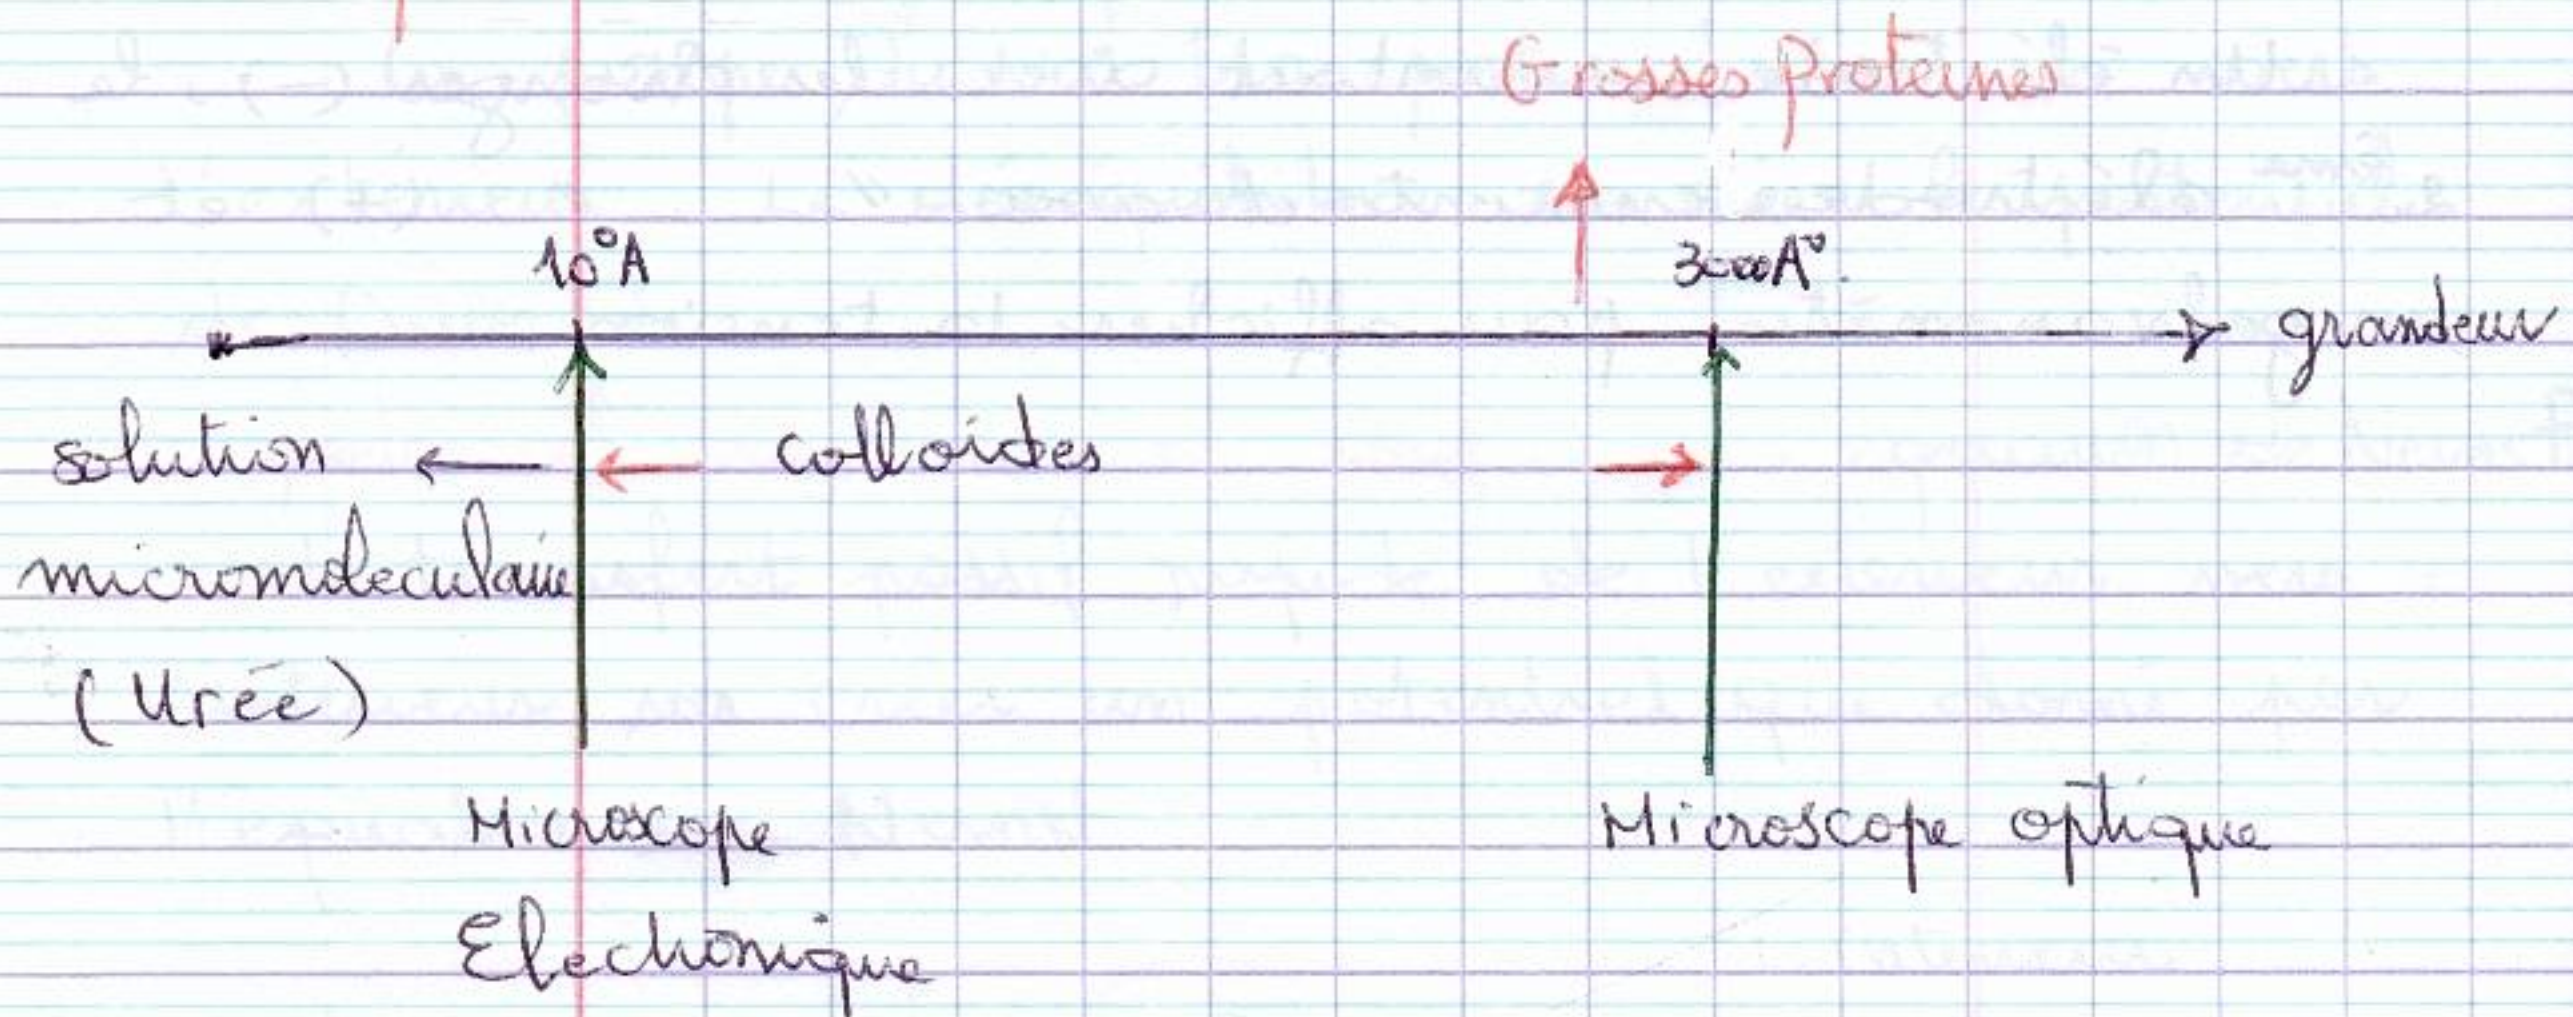 Grosses Proteines
10°A
3000A°.
grandeur
solution
colloides
micromoleculaire
(Urée)
Microscope
Electronique
Microscope optique